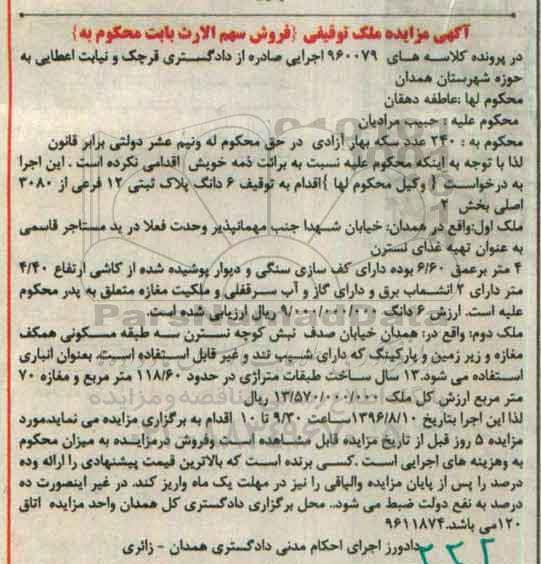 آگهی مزایده ملک توقیفی {فروش سهم الارث بابت محکوم به}
در پرونده کلاسه های ۹۶۰۰۷۹ اجرایی صادره از دادگستری قرچک و نیابت اعطایی به
حوزه شهرستان همدان
محکوم لها :عاطفه دهقان
محکوم علیه : حبیب مرادیان
محکوم به : ۲۴۰ عدد سکه بهار آزادی در حق محکوم له ونیم عشر دولتی برابر قانون
لذا با توجه به اینکه محکوم علیه نسبت به برائت ذمه خویش اقدامی نکرده است . این اجرا
به درخواست { وکیل محکوم لها }اقدام به توقیف ۶ دانگ پلاک ثبتی ۱۲ فرعی از ۳۰۸۰
اصلی بخش ۲
ملک اول:واقع در همدان: خیابان شهدا جنب مهمانپذیر وحدت فعلا در ید مستاجر قاسمی
به عنوان تهیه غذای نسترن
۴ متر برعمق ۶/۶۰ بوده دارای کف سازی سنگی و دیوار پوشیده شده از کاشی ارتفاع ۴/۴۰
متر دارای ۲ انشعاب برق و دارای گاز و آب سرقفلی و ملکیت مغازه متعلق به پدر محکوم
علیه است. ارزش ۶ دانگ ۹/۰۰۰/۰۰۰/۰۰۰ ریال ارزیابی شده است.
ملک دوم: واقع در: همدان خیابان صدف نبش کوچه نسترن سه طبقه مسکونی همکف
مغازه و زیر زمین و پارکینگ که دارای شیب تند و غیر قابل استفاده است. بعنوان انباری
استفاده می شود.۱۳ سال ساخت طبقات متراژی در حدود ۱۱۸/۶۰ متر مربع و مغازه ۷۰
متر مربع ارزش کل ملک ۱۳/۵۷۰/۰۰۰/۰۰۰ ریال
لذا این اجرا بتاریخ ۱۳۹۶/۸/۱۰ساعت ۹/۳۰ تا ۱۰ اقدام به برگزاری مزایده می نماید.مورد
مزایده ۵ روز قبل از تاریخ مزایده قابل مشاهده است وفروش درمزایده به میزان محکوم
به وهزینه های اجرایی است .کسی برنده است که بالاترین قیمت پیشنهادی را ارائه وده
درصد را پس از پایان مزایده والباقی را نیز در مهلت یک ماه واریز کند. در غیر اینصورت ده
درصد به نفع دولت ضبط می شود.. محل برگزاری دادگستری کل همدان واحد مزایده اتاق
۱۲۰می باشد.۹۶۱۱۸۷۴
دادورز اجرای احکام مدنی دادگستری همدان - زائری